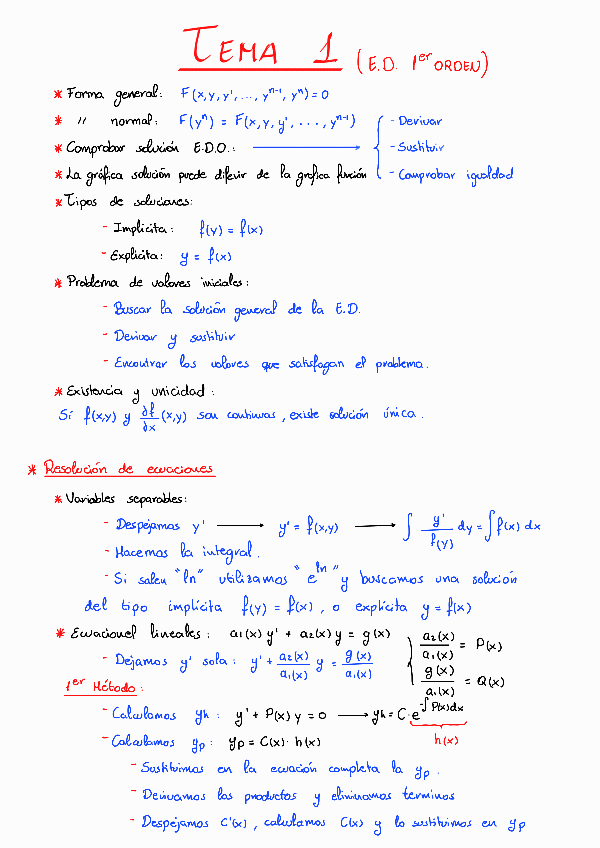 TEMA 1 (E.D. 1er ORDEN)
* Forma general: F(x,y,y',...,yⁿ⁻¹,yⁿ)=0
* " normal: F(yⁿ) = F(x,y,y',...,yⁿ⁻¹) { - Derivar
* Comprobar solución E.D.O.: ⟶ - Sustituir
* La gráfica solución puede diferir de la grafica función - Comprobar igualdad
* Tipos de soluciones:
- Implícita: f(y) = f(x)
- Explícita: y = f(x)
* Problema de valores iniciales:
- Buscar la solución general de la E.D.
- Derivar y sustituir
- Encontrar los valores que satisfagan el problema.
* Existencia y unicidad:
Si f(x,y) y ∂f/∂x (x,y) son continuas, existe solución única.
* Resolución de ecuaciones
* Variables separables:
- Despejamos y' ⟶ y' = f(x,y) ⟶ ∫ y'/f(y) dy = ∫ f(x) dx
- Hacemos la integral.
- Si salen "ln" utilizamos "e^ln" y buscamos una solución
del tipo implícita f(y) = f(x), o explícita y = f(x)
* Ecuacionel lineales: a₁(x) y' + a₂(x) y = g(x) } a₂(x)/a₁(x) = P(x)
- Dejamos y' sola: y' + a₂(x)/a₁(x) y = g(x)/a₁(x) g(x)/a₁(x) = Q(x)
1er Método:
- Calculamos yh: y' + P(x) y = 0 ⟶ yh = C·e^-∫P(x)dx
- Calculamos yp: yp = C(x)· h(x) h(x)
- Sustituimos en la ecuación completa la yp.
- Derivamos los productos y eliminamos terminos
- Despejamos C'(x), calculamos C(x) y lo sustituimos en yp